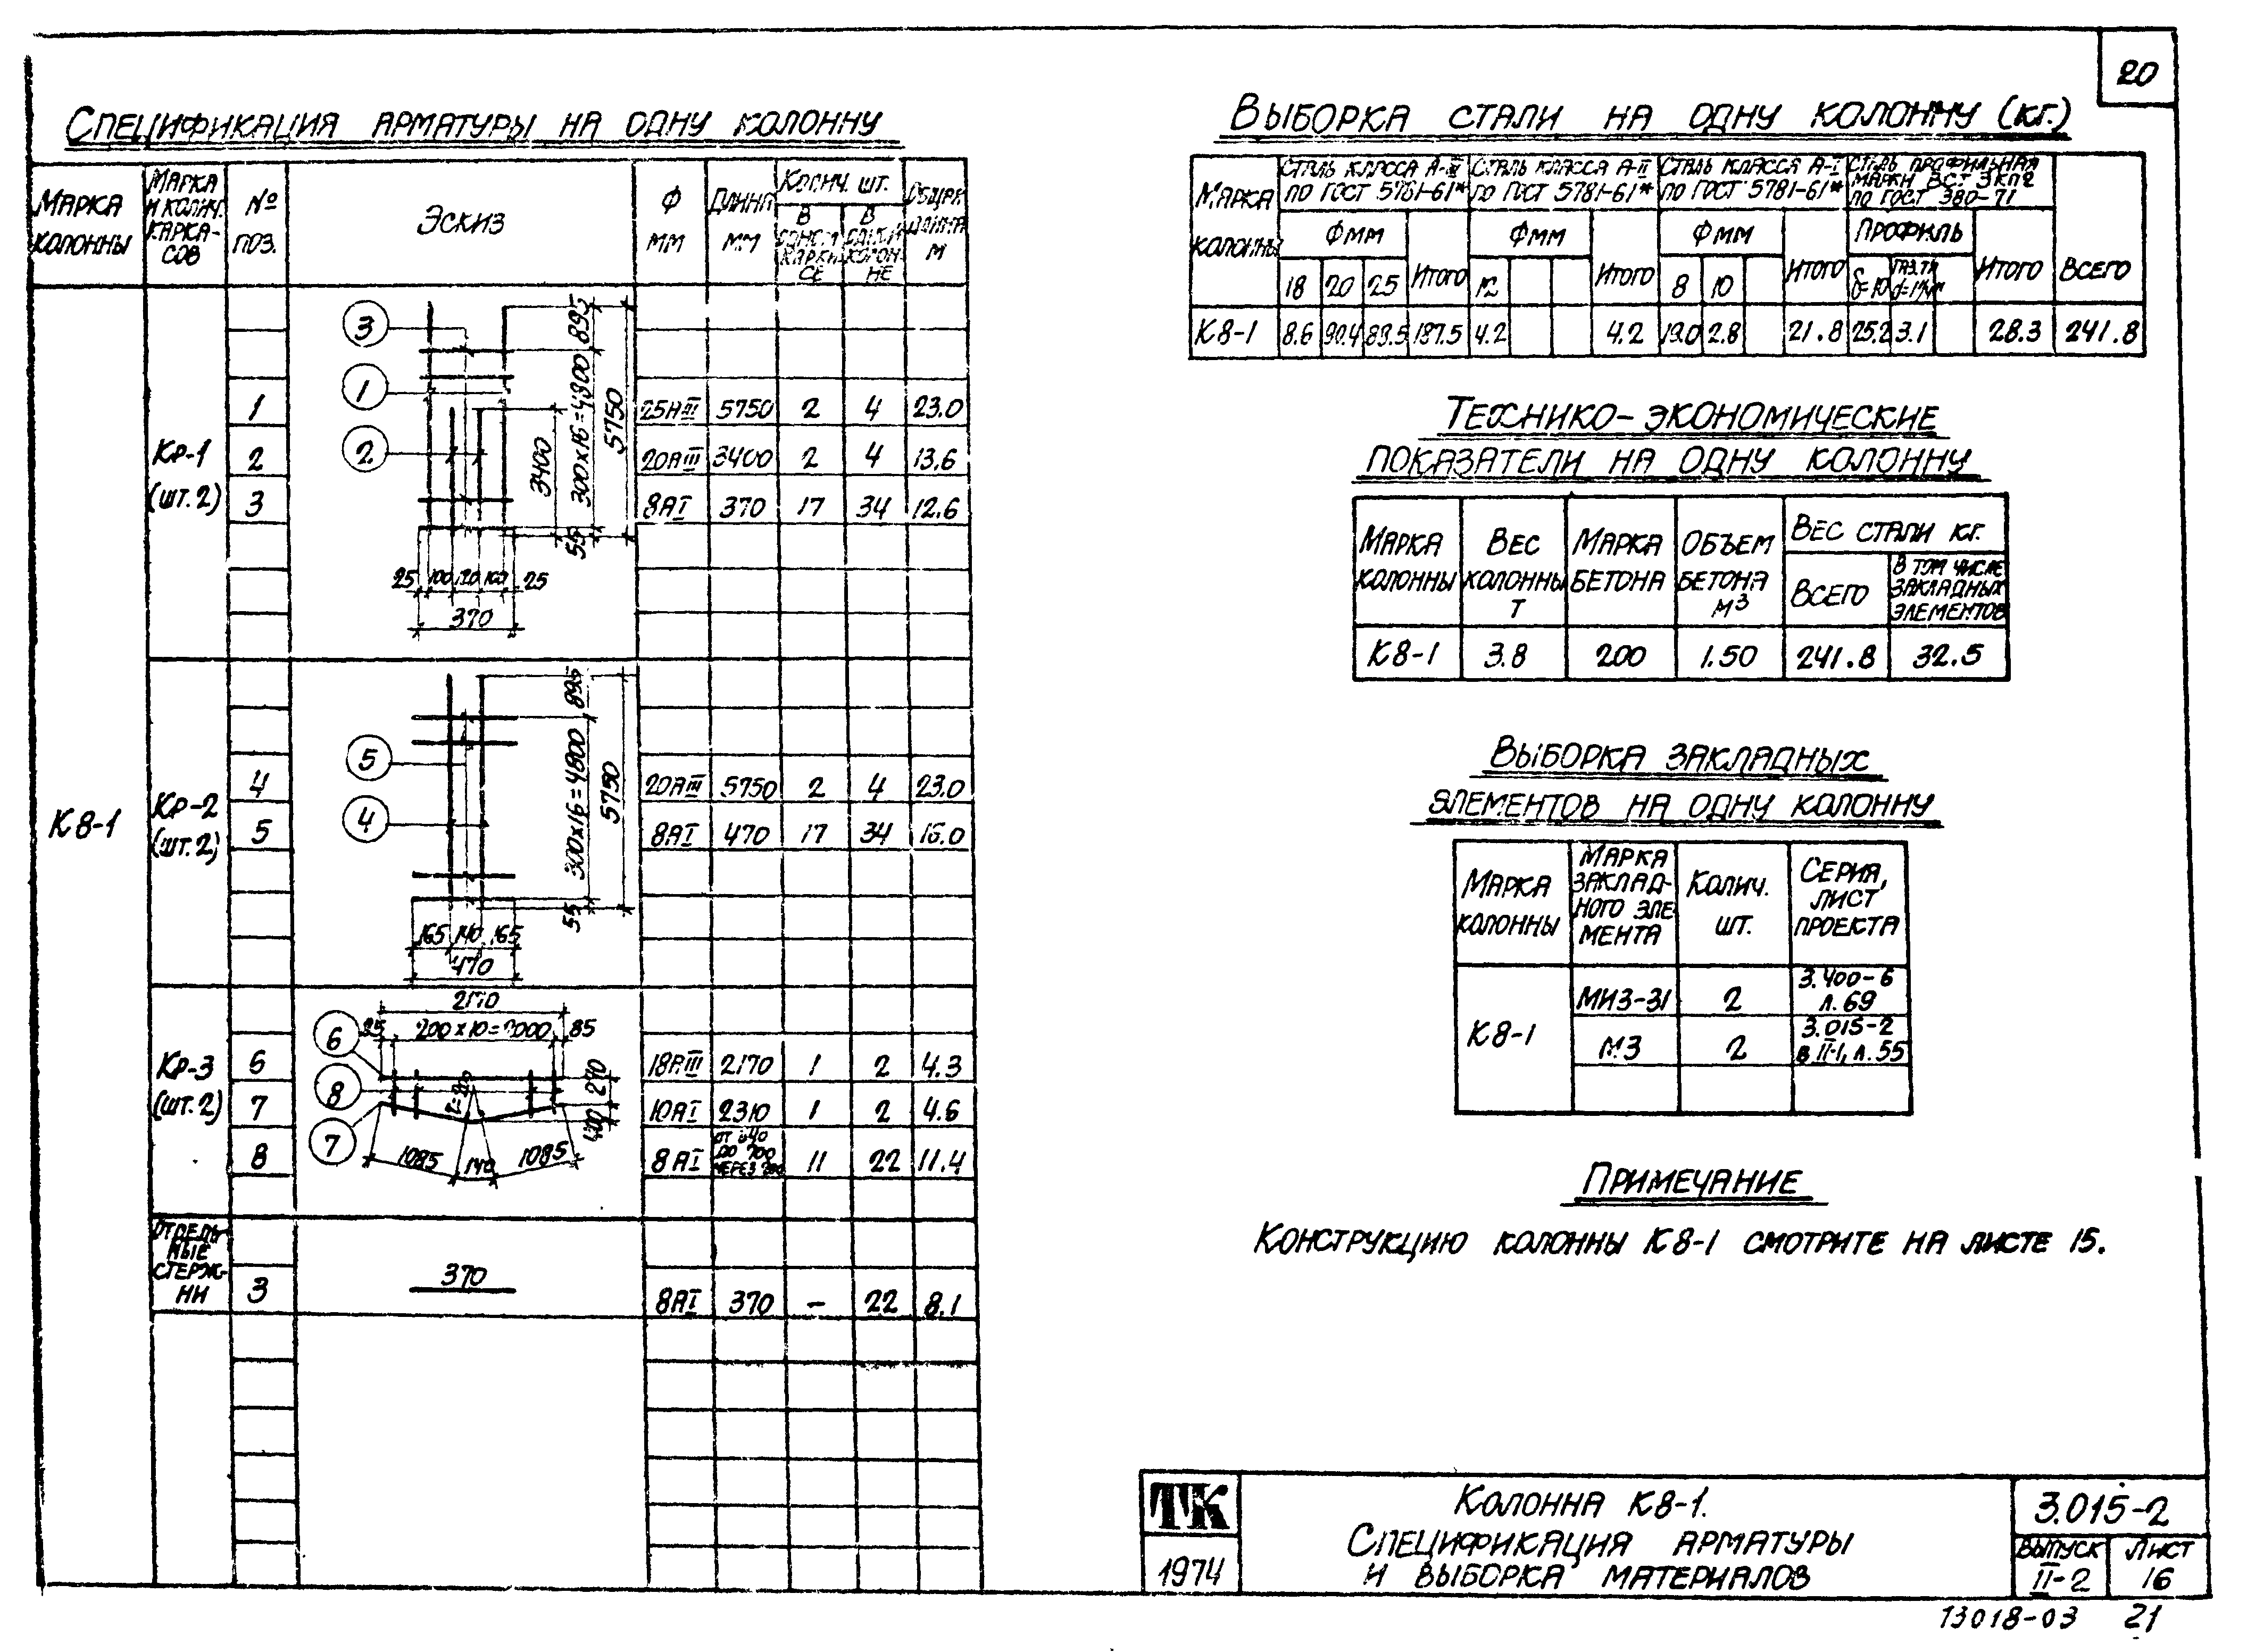 20
СПЕЦИФИКАЦИЯ АРМАТУРЫ НА ОДНУ КОЛОННУ
МАРКА КОЛОННЫ
МАРКА И КОЛИЧ. КАРКАСОВ
№ ПОЗ.
ЭСКИЗ
Ф ММ
ДЛИНА ММ
КОЛИЧ. ШТ.
В ОДНОМ КАРКАСЕ
В ОДНОЙ КОЛОННЕ
ОБЩАЯ ДЛИНА М
К8-1
КР-1 (ШТ.2)
3
1
2
895
300х16=4800
5750
3400
55
25 100 120 100 25
370
1 25АIII 5750 2 4 23.0
2 20АIII 3400 2 4 13.6
3 8АI 370 17 34 12.6
КР-2 (ШТ.2)
5
4
895
300х16=4800
5750
55
165 140 165
470
4 20АIII 5750 2 4 23.0
5 8АI 470 17 34 16.0
КР-3 (ШТ.2)
2170
85 200х10=2000 85
6
8
7
1085 140 1085
6 18АIII 2170 1 2 4.3
7 10АI 2310 1 2 4.6
8 8АI 11 22 11.4
ОТДЕЛЬНЫЕ СТЕРЖНИ
370
3 8АI 370 – 22 8.1
ВЫБОРКА СТАЛИ НА ОДНУ КОЛОННУ (КГ.)
МАРКА КОЛОННЫ
СТАЛЬ КЛАССА А-III ПО ГОСТ 5781-61*
СТАЛЬ КЛАССА А-II ПО ГОСТ 5781-61*
СТАЛЬ КЛАССА А-I ПО ГОСТ 5781-61*
СТАЛЬ ПРОФИЛЬНАЯ МАРКИ ВСТ 3КП2 ПО ГОСТ 380-71
ФММ ИТОГО ФММ ИТОГО ФММ ИТОГО ПРОФИЛЬ ИТОГО ВСЕГО
18 20 25 12 8 10 δ=10
К8-1 8.6 90.4 88.5 187.5 4.2 4.2 19.0 2.8 21.8 25.2 3.1 28.3 241.8
ТЕХНИКО-ЭКОНОМИЧЕСКИЕ
ПОКАЗАТЕЛИ НА ОДНУ КОЛОННУ
МАРКА КОЛОННЫ
ВЕС КОЛОННЫ Т
МАРКА БЕТОНА
ОБЪЕМ БЕТОНА М3
ВЕС СТАЛИ КГ.
ВСЕГО
В ТОМ ЧИСЛЕ ЗАКЛАДНЫХ ЭЛЕМЕНТОВ
К8-1 3.8 200 1.50 241.8 32.5
ВЫБОРКА ЗАКЛАДНЫХ
ЭЛЕМЕНТОВ НА ОДНУ КОЛОННУ
МАРКА КОЛОННЫ
МАРКА ЗАКЛАДНОГО ЭЛЕМЕНТА
КОЛИЧ. ШТ.
СЕРИЯ, ЛИСТ ПРОЕКТА
К8-1
МИЗ-31 2 3.400-6 Л.69
М3 2 3.015-2 В II-1, Л.55
ПРИМЕЧАНИЕ
КОНСТРУКЦИЮ КОЛОННЫ К8-1 СМОТРИТЕ НА ЛИСТЕ 15.
ТК
1974
КОЛОННА К8-1.
СПЕЦИФИКАЦИЯ АРМАТУРЫ
И ВЫБОРКА МАТЕРИАЛОВ
3.015-2
ВЫПУСК II-2
ЛИСТ 16
13018-03 21